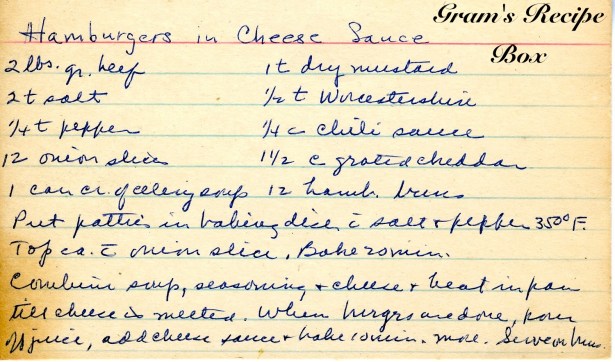 Gram's Recipe
Box
Hamburgers in Cheese Sauce
2 lbs. gr. beef 1 t dry mustard
2 t salt 1/2 t Worcestershire
1/4 t pepper 1/4 c chili sauce
12 onion slices 1 1/2 c grated cheddar
1 can cr. of celery soup 12 hamb. buns
Put patties in baking dish c̄ salt + pepper 350° F.
Top ea. c̄ onion slice. Bake 20 min.
Combine soup, seasoning, + cheese + heat in pan
till cheese is melted. When burgrs are done, pour
off juice, add cheese sauce + bake 10 min. more. Serve on buns.